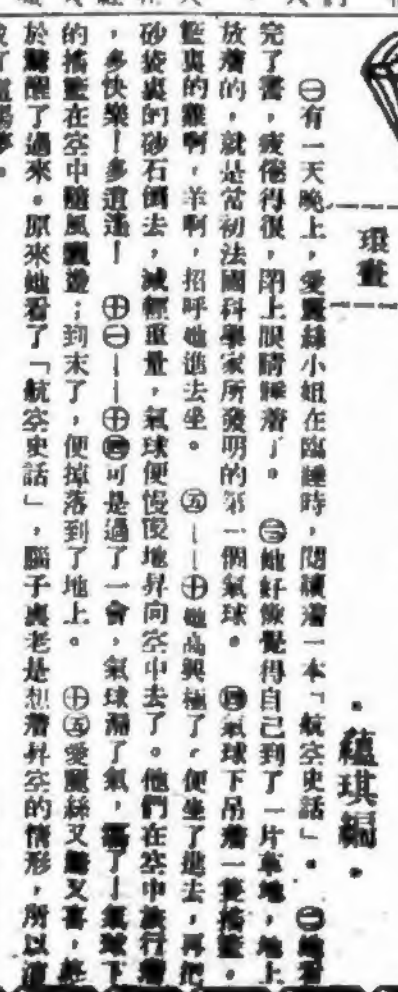 琅畫
·蘊琪編·
㊀有一天晚上，愛麗絲小姐在臨睡時，閱讀着一本「航空史話」。㊁她看
完了書，疲倦得很，閉上眼睛睡着了。㊂她好像覺得自己到了一片草地，地上
放着的，就是當初法國科學家所發明的第一個氣球。㊃氣球下吊着一隻搖籃，
籃裏的雞啊，羊啊，招呼她進去坐。㊄——㊉她高興極了，便坐了進去，再把
砂袋裏的砂石倒去，減輕重量，氣球便慢慢地昇向空中去了。他們在空中旅行着
，多快樂！多逍遙！㊉㊀——㊉㊃可是過了一會，氣球漏了氣，癟了！氣球下
的搖籃在空中隨風飄盪；到末了，便掉落到了地上。㊉㊄愛麗絲又驚又喜，終
於醒了過來。原來她看了「航空史話」，腦子裏老是想着昇空的情形，所以